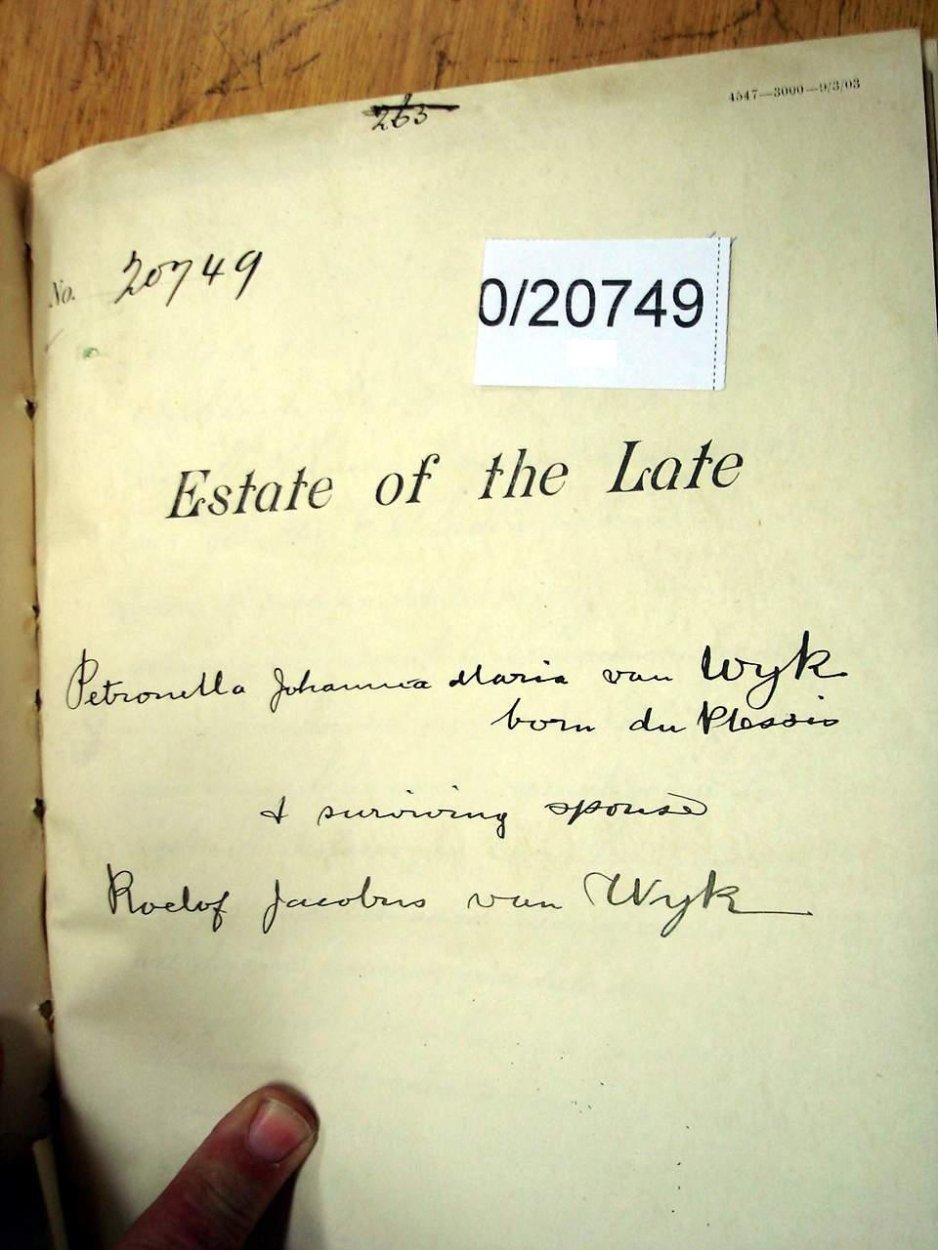 263
4547—3000—9/3/03
No. 20749
0/20749
Estate of the Late
Petronella Johanna Maria van Wyk
born du Plessis
& surviving spouse
Roelof Jacobus van Wyk